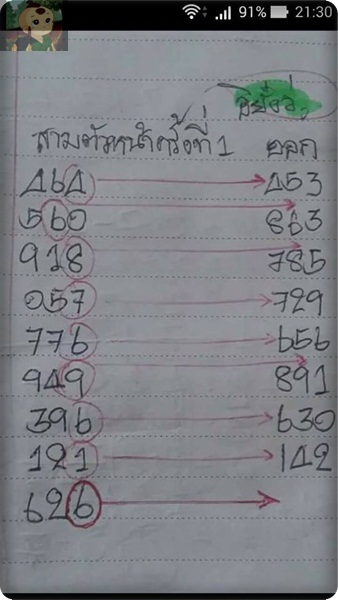 91% 21:30
สามตัวหน้าครั้งที่ 1 ออก
464 453
560 863
918 785
057 729
776 656
949 891
396 630
121 142
626